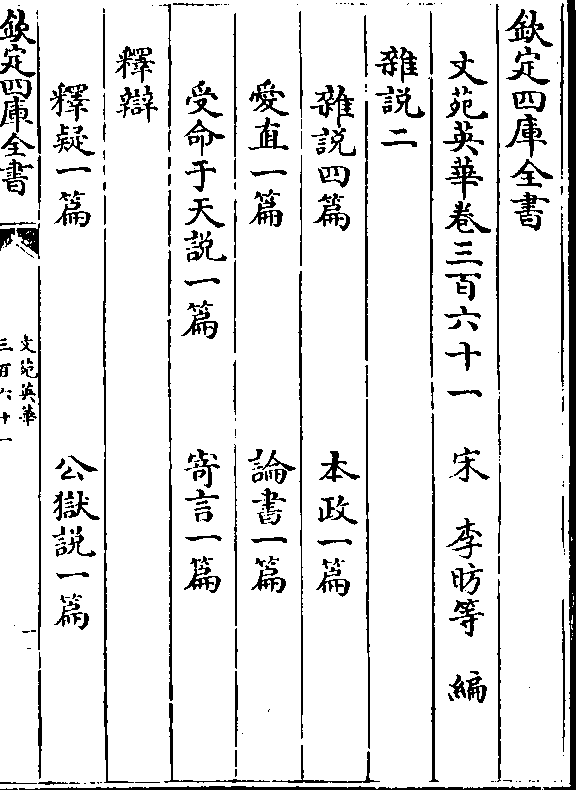 欽定四庫全書
文苑英華卷三百六十一 宋 李昉等 編
雜説二
雜説四篇 本政一篇
愛直一篇 論書一篇
受命于天説一篇 寄言一篇
釋辯
釋疑一篇 公獄説一篇
欽定四庫全書
文苑英華
三百六十一
一